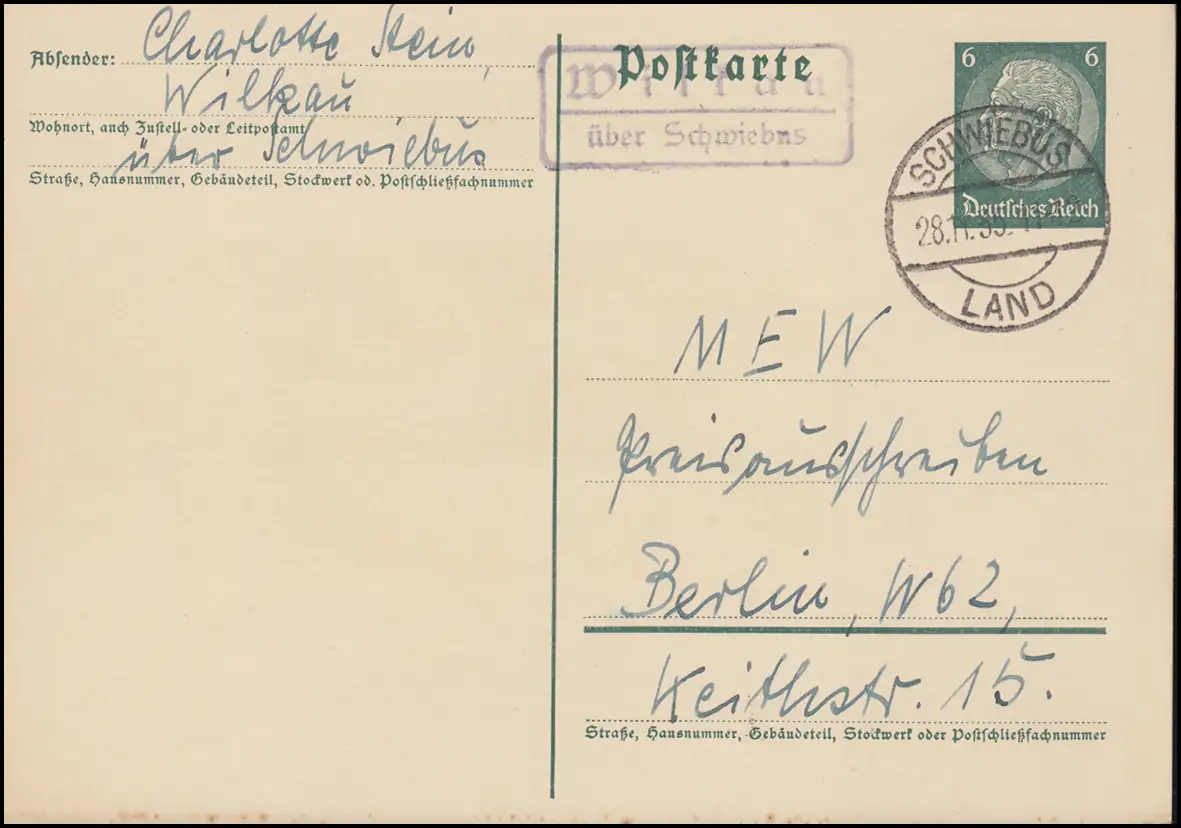 Absender: Charlotte Stein,
Wilkau
Wohnort, auch Zustell- oder Leitpostamt
über Schwiebus
Straße, Hausnummer, Gebäudeteil, Stockwerk od. Postschließfachnummer
Postkarte
Wilkau
über Schwiebus
6 6
Deutsches Reich
SCHWIEBUS
28.11.
LAND
MEW
Preisausschreiben
Berlin, W62,
Keithstr. 15.
Straße, Hausnummer, Gebäudeteil, Stockwerk oder Postschließfachnummer